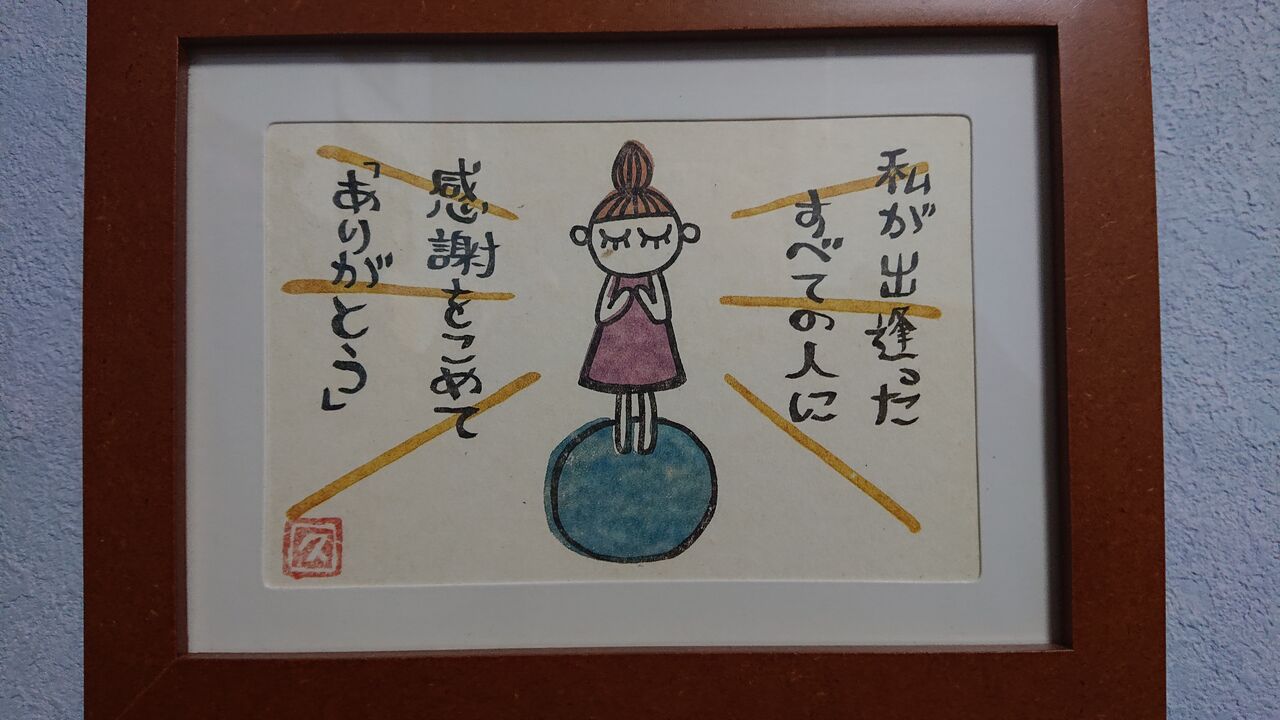 私が出逢った
すべての人に
感謝をこめて
「ありがとう」
久